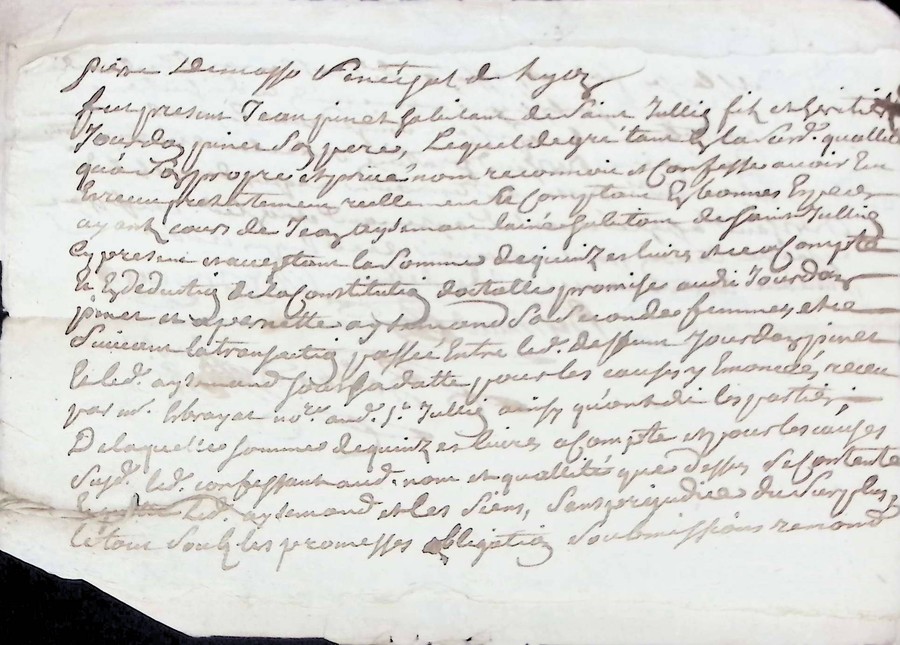 pierre Demasso Senechal de Lyon
fut present Jean pinet habitant de Saint Jullin filz et heritier
Jourdan pinet Son pere, Lequel de gré tant en la Susd. quallité
qu'à Son propre et privé nom reconnoit et Confesse avoir Eu
Et receu presentement reellement et Comptant En bonnes Especes
ayant Cours de Jean aymand laine habitant de Saint Jullin
Cy present et acceptant la Somme de quinze livres et ce a Compte
et En deduction de la Constitution dotalle promise audit Jourdan
pinet et a pernette aymand Sa Seconde femme, et ce
Suivant la transaction passée Entre led. deffunt Jourdan pinet
et led. aymand Sous Sa datte, pour les causes y Enoncées receu
par me. nore. aud. St. Jullin ainsy qu'ont dit les parties,
De laquelle somme de quinze livres a Compte et pour les causes
Susd. led. confessant aud. nom et quallité que dessus Se Contente
Et quitte led. aymand et les Siens, Sans prejudice du Surplus,
le tout Soubz les promesses obligation Soubmissions renond